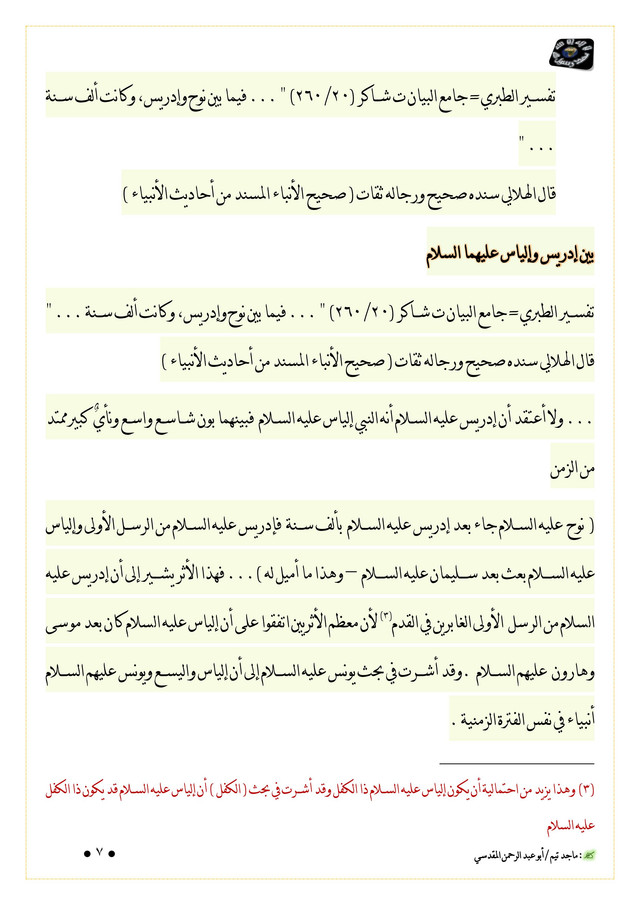 تفسير الطبري= جامع البيان ت شاكر (٢٠/ ٢٦٠) " ... فيما بين نوح وإدريس، وكانت ألف سنة
... "
قال الهلالي سنده صحيح ورجاله ثقات ( صحيح الأنباء المسند من أحاديث الأنبياء )
بين إدريس وإلياس عليهما السلام
تفسير الطبري= جامع البيان ت شاكر (٢٠/ ٢٦٠) " ... فيما بين نوح وإدريس، وكانت ألف سنة ... "
قال الهلالي سنده صحيح ورجاله ثقات ( صحيح الأنباء المسند من أحاديث الأنبياء )
... ولا أعتقد أن إدريس عليه السلام أنه النبي إلياس عليه السلام فبينهما بون شاسع واسع ونأيٌ كبير ممتد
من الزمن
( نوح عليه السلام جاء بعد إدريس عليه السلام بألف سنة فإدريس عليه السلام من الرسل الأولى وإلياس
عليه السلام بعث بعد سليمان عليه السلام – وهذا ما أميل له ) ... فهذا الأثر يشير إلى أن إدريس عليه
السلام من الرسل الأولى الغابرين في القدم (٣) لأن معظم الأثريين اتفقوا على أن إلياس عليه السلام كان بعد موسى
وهارون عليهم السلام . وقد أشرت في بحث يونس عليه السلام إلى أن إلياس واليسع ويونس عليهم السلام
أنبياء في نفس الفترة الزمنية .
(٣) وهذا يزيد من احتمالية أن يكون إلياس عليه السلام ذا الكفل وقد أشرت في بحث ( الكفل ) أن إلياس عليه السلام قد يكون ذا الكفل
عليه السلام
: ماجد تيم / أبو عبد الرحمن المقدسي
● ٧ ●